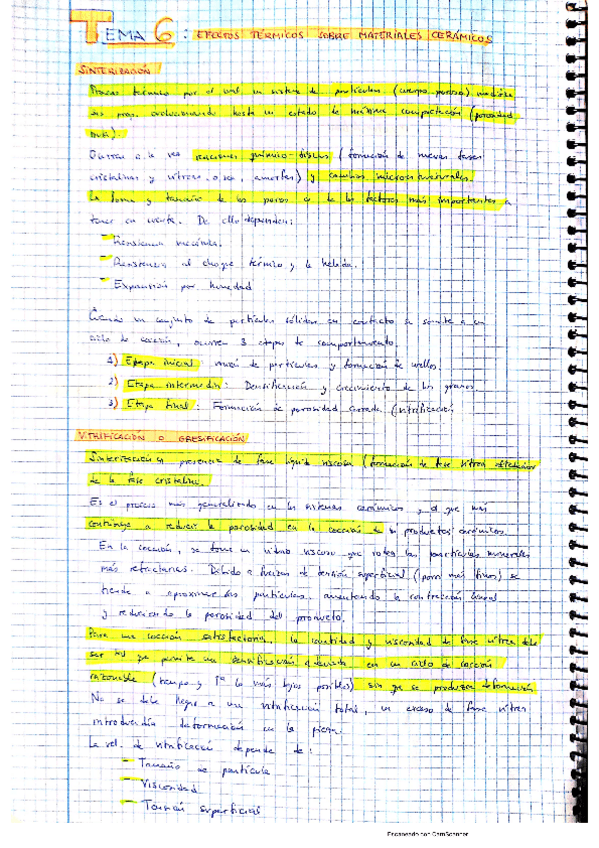 TEMA 6: EFECTOS TÉRMICOS SOBRE MATERIALES CERÁMICOS
SINTERIZACIÓN
Proceso térmico por el cual un sistema de partículas (cuerpo poroso) modifica
sus prop. evolucionando hasta un estado de máxima compactación (porosidad
nula).
Ocurren a la vez reacciones químico-físicas (formación de nuevas fases
cristalinas y vítreas, o sea, amorfas) y cambios microestructurales.
La forma y tamaño de los poros es de los factores más importantes a
tener en cuenta. De ello dependen:
- Resistencia mecánica.
- Resistencia al choque térmico y la helada.
- Expansión por humedad
Cuando un conjunto de partículas sólidas en contacto se somete a un
ciclo de cocción, ocurren 3 etapas de comportamiento.
1) Etapa inicial: unión de partículas y formación de cuellos.
2) Etapa intermedia: Densificación y crecimiento de los granos.
3) Etapa final: Formación de porosidad cerrada (vitrificación
VITRIFICACIÓN O GRESIFICACIÓN
Sinterización en presencia de fase líquida viscosa (formación de fase vítrea alrededor
de la fase cristalina.
Es el proceso más generalizado en los sistemas cerámicos y el que más
contribuye a reducir la porosidad en la cocción de productos cerámicos.
En la cocción, se forma un vidrio viscoso que rodea las partículas minerales
más refractarias. Debido a fuerzas de tensión superficial (poros más finos) se
tiende a aproximar las partículas, aumentando la contracción lineal
y reduciendo la porosidad del producto.
Para una cocción satisfactoria, la cantidad y viscosidad de fase vítrea debe
ser tal que permita una densificación adecuada en un ciclo de cocción
razonable (tiempo y Tª lo más bajos posibles) sin que se produzca deformación
No se debe llegar a una vitrificación total, un exceso de fase vítrea
introduciría deformación en la pieza.
La vel. de vitrificación depende de:
- Tamaño de partícula
- Viscosidad
- Tensión superficial
Escaneado con CamScanner